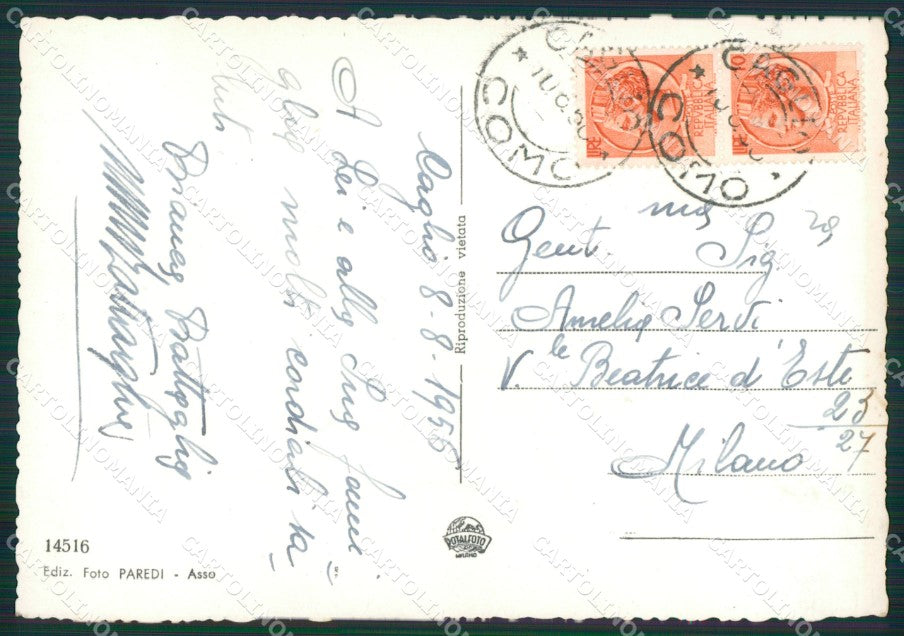 Caglio 8-8-1956
A Lei e alla Sua fami-
glia molti cordiali sa-
luti
Battaglia
14516
Ediz. Foto PAREDI - Asso
Riproduzione vietata
ROTALFOTO
MILANO
CAGLIO
COMO
CAGLIO
COMO
LIRE
REPUBBLICA
ITALIANA
LIRE 10
REPUBBLICA
ITALIANA
Gent ma Sig ra
Amelia Servi
V.le Beatrice d'Este
23
27
Milano
CARTOLINOMANIA